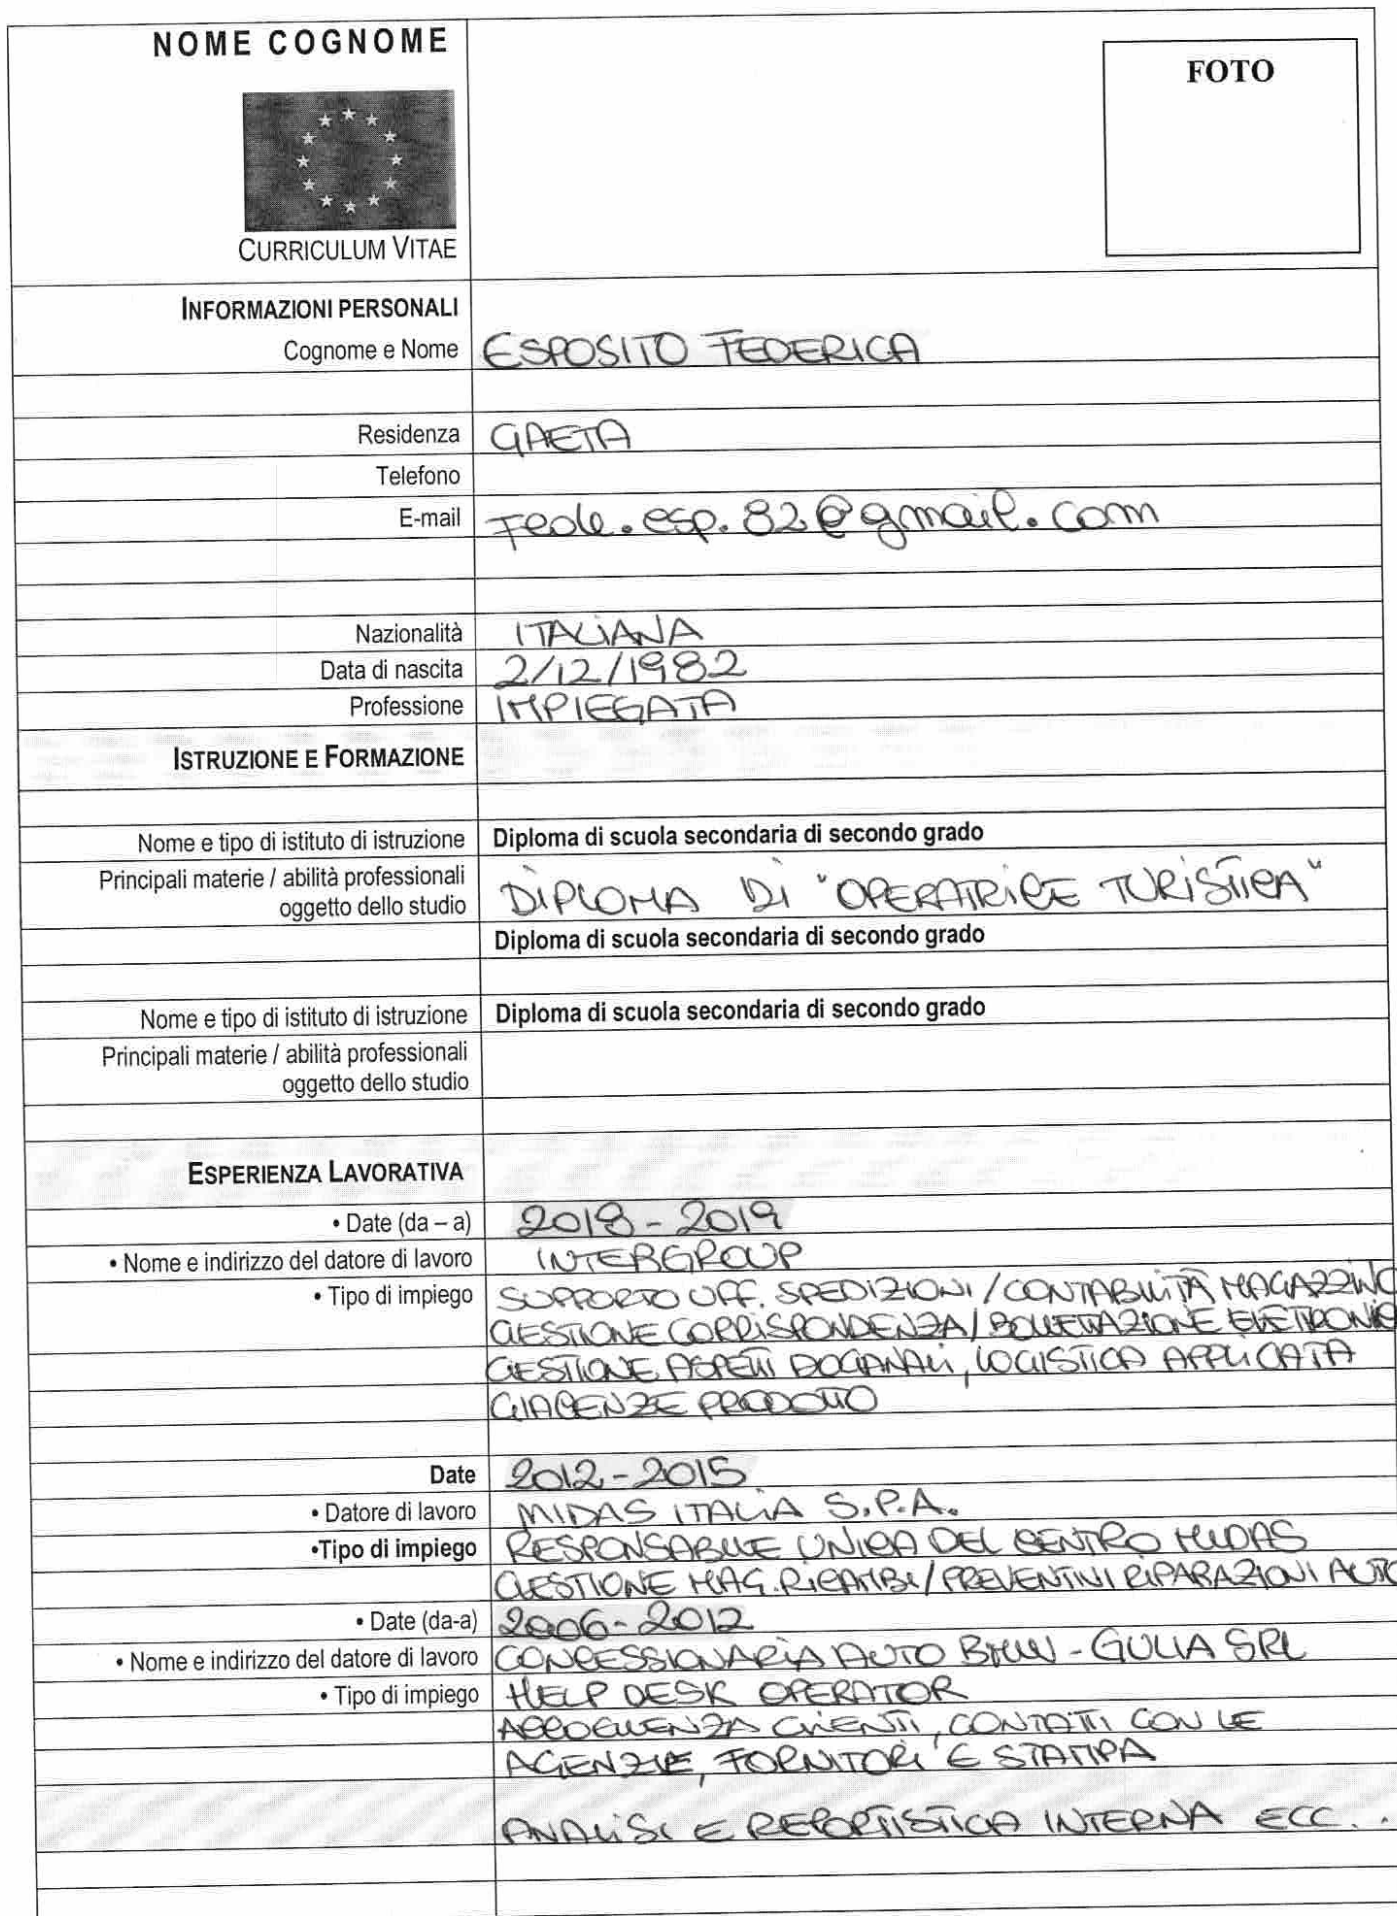 NOME COGNOME
FOTO
CURRICULUM VITAE
INFORMAZIONI PERSONALI
Cognome e Nome ESPOSITO FEDERICA
Residenza GAETA
Telefono
E-mail fede.esp.82@gmail.com
Nazionalità ITALIANA
Data di nascita 2/12/1982
Professione IMPIEGATA
ISTRUZIONE E FORMAZIONE
Nome e tipo di istituto di istruzione Diploma di scuola secondaria di secondo grado
Principali materie / abilità professionali
oggetto dello studio DIPLOMA DI "OPERATRICE TURISTICA"
Diploma di scuola secondaria di secondo grado
Nome e tipo di istituto di istruzione Diploma di scuola secondaria di secondo grado
Principali materie / abilità professionali
oggetto dello studio
ESPERIENZA LAVORATIVA
• Date (da – a) 2018 - 2019
• Nome e indirizzo del datore di lavoro INTERGROUP
• Tipo di impiego SUPPORTO UFF. SPEDIZIONI / CONTABILITÀ MAGAZZINO
GESTIONE CORRISPONDENZA / BOLLETTAZIONE ELETTRONIC
GESTIONE ASPETTI DOGANALI, LOGISTICA APPLICATA
GIACENZE PRODOTTO
Date 2012 - 2015
• Datore di lavoro MIDAS ITALIA S.P.A.
•Tipo di impiego RESPONSABILE UNICA DEL CENTRO MIDAS
GESTIONE MAG. RICAMBI / PREVENTINI RIPARAZIONI AUTO
• Date (da-a) 2006 - 2012
• Nome e indirizzo del datore di lavoro CONCESSIONARIA AUTO BMW - GULIA SRL
• Tipo di impiego HELP DESK OPERATOR
ACCOGLIENZA CLIENTI, CONTATTI CON LE
AGENZIE, FORNITORI E STAMPA
ANALISI E REPORTISTICA INTERNA ECC..